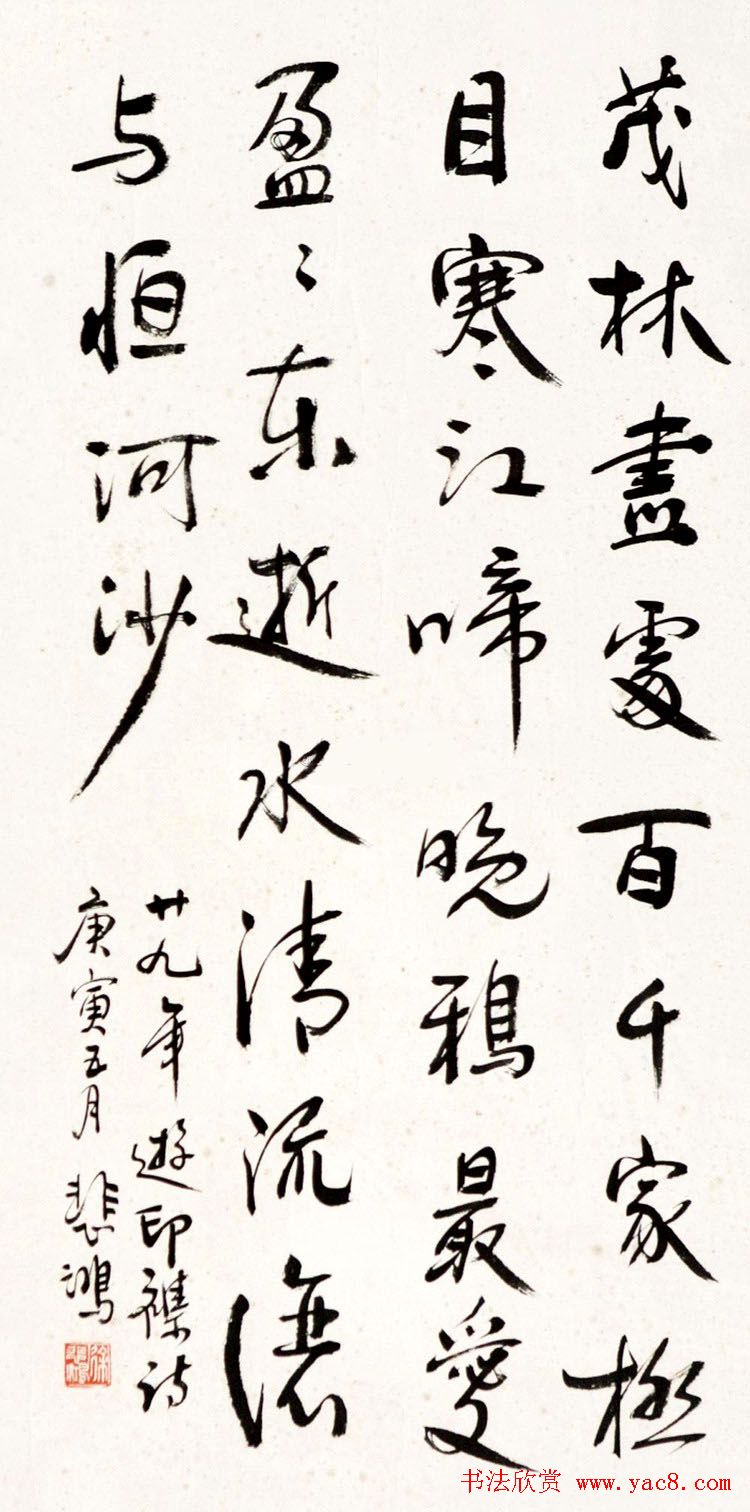 茂林盡處百千家極
目寒江啼晚鴉最愛
盈〻東逝水清流
与恒河沙
廿九年遊印襍詩
庚寅五月 悲鴻
书法欣赏 www.yac8.com